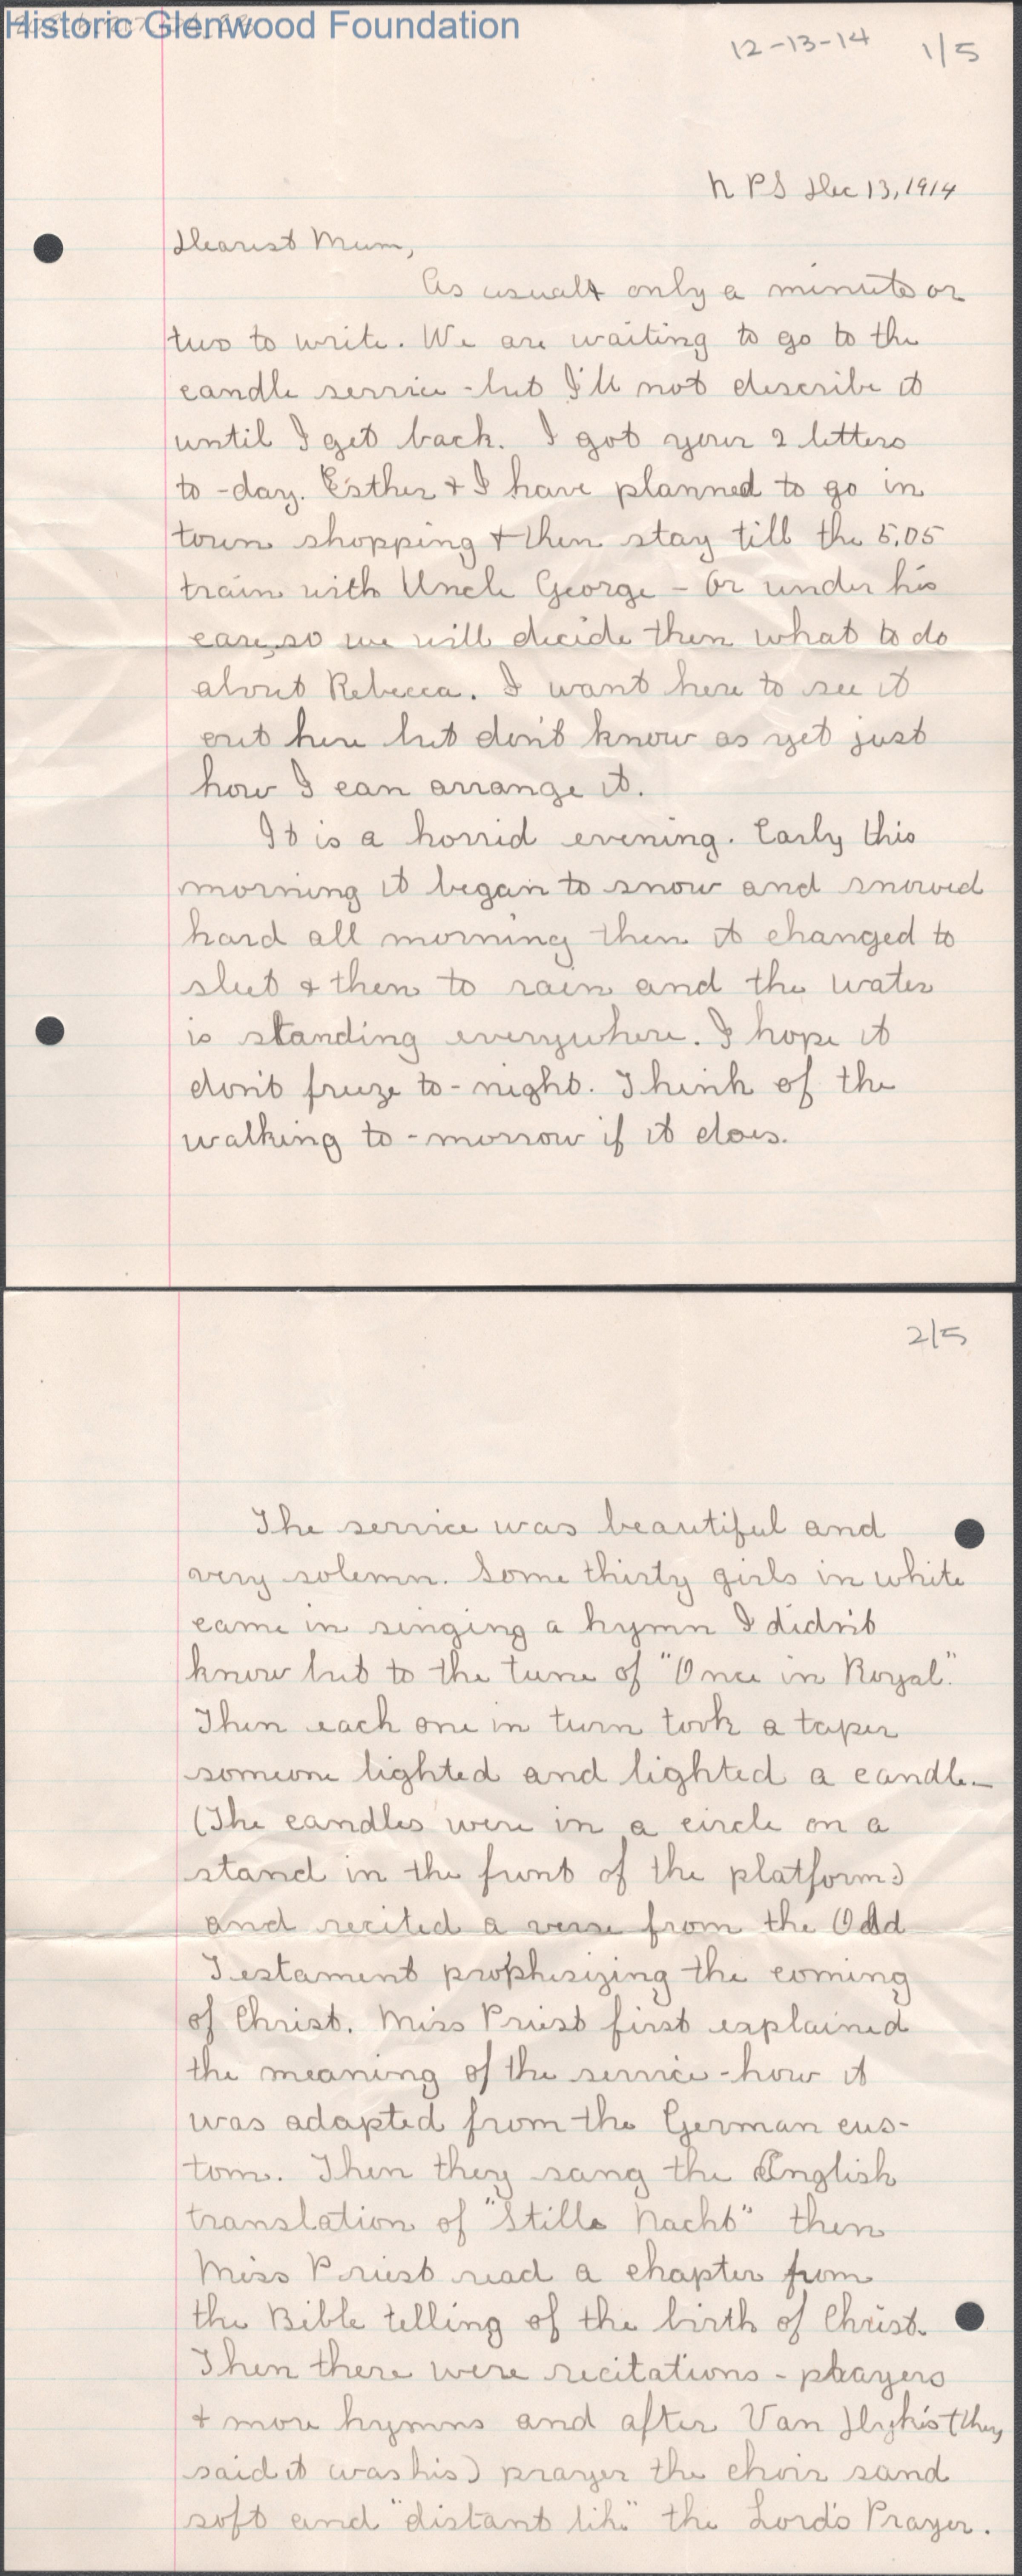 Historic Glenwood Foundation
12-13-14 1/5
N P S Dec 13, 1914
Dearest Mum,
As usual only a minute or
two to write. We are waiting to go to the
candle service - but I'll not describe it
until I get back. I got your 2 letters
to-day. Esther + I have planned to go in
town shopping + then stay till the 5.05
train with Uncle George - Or under his
care, so we will decide then what to do
about Rebecca. I want here to see it
out here but don't know as yet just
how I can arrange it.
It is a horrid evening. Early this
morning it began to snow and snowed
hard all morning then it changed to
sleet + then to rain and the water
is standing everywhere. I hope it
don't freeze to-night. Think of the
walking to-morrow if it does.
2/5
The service was beautiful and
very solemn. Some thirty girls in white
came in singing a hymn I didn't
know but to the tune of "Once in Royal."
Then each one in turn took a taper
someone lighted and lighted a candle-
(The candles were in a circle on a
stand in the front of the platform)
and recited a verse from the Old
Testament prophesizing the coming
of Christ. Miss Priest first explained
the meaning of the service - how it
was adapted from the German cus-
tom. Then they sang the English
translation of "Stille Nacht" then
Miss Priest read a chapter from
the Bible telling of the birth of Christ.
Then there were recitations - prayers
+ more hymns and after Van Dyke's (they
said it was his) prayer the choir sand
soft and "distant like" the Lord's Prayer.